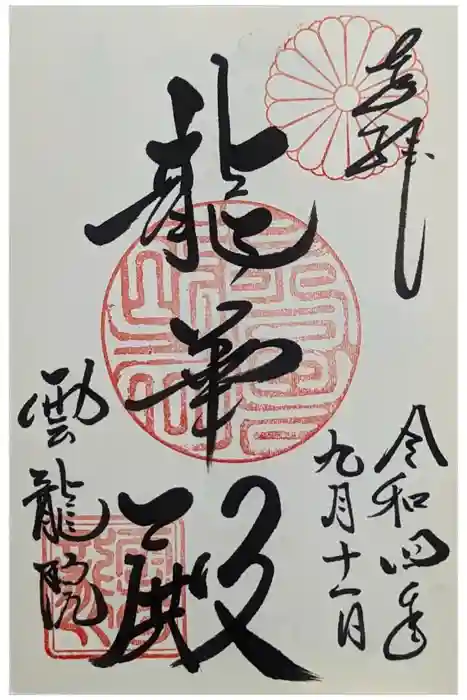 奉拝
令和四年
九月十一日
龍華殿
勅
雲龍院